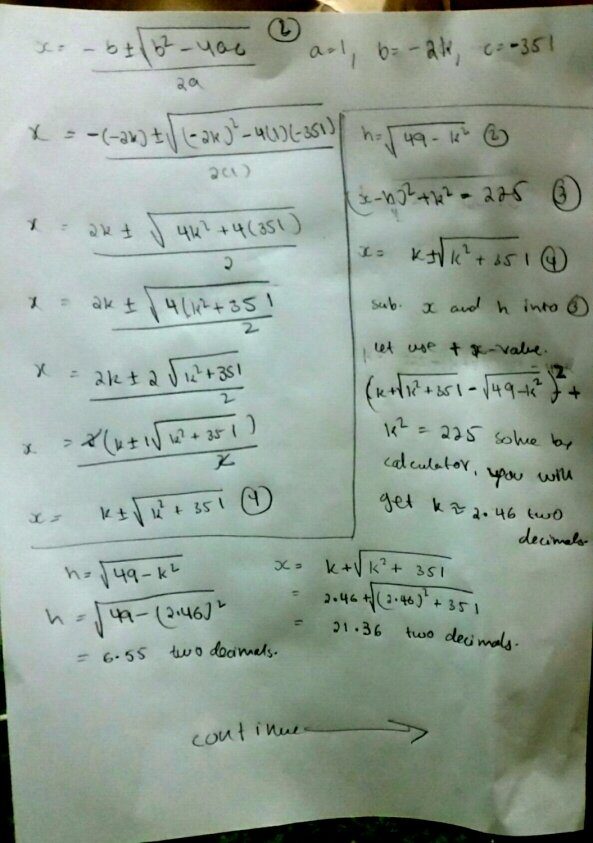 x = -b ± √b² - 4ac ②    a=1, b = -2k, c = -351
2a
x = -(-2k) ± √(-2k)² - 4(1)(-351)
2(1)
x = 2k ± √4k² + 4(351)
2
x = 2k ± √4(k² + 351
2
x = 2k ± 2√k² + 351
2
x = 2(k ± 1√k² + 351)
2
x = k ± √k² + 351 ④
h = √49 - k² ②
(x-h)² + k² = 225 ③
x = k ± √k² + 351 ④
sub. x and h into ③
Let use + x-value.
(k+√k² + 351 - √49-k²)² +
k² = 225 solve by
calculator, you will
get k ≈ 2.46 two
decimals.
h = √49 - k²
h = √49 - (2.46)²
= 6.55 two decimals.
x = k + √k² + 351
= 2.46 + √(2.46)² + 351
= 21.36 two decimals.
continue →